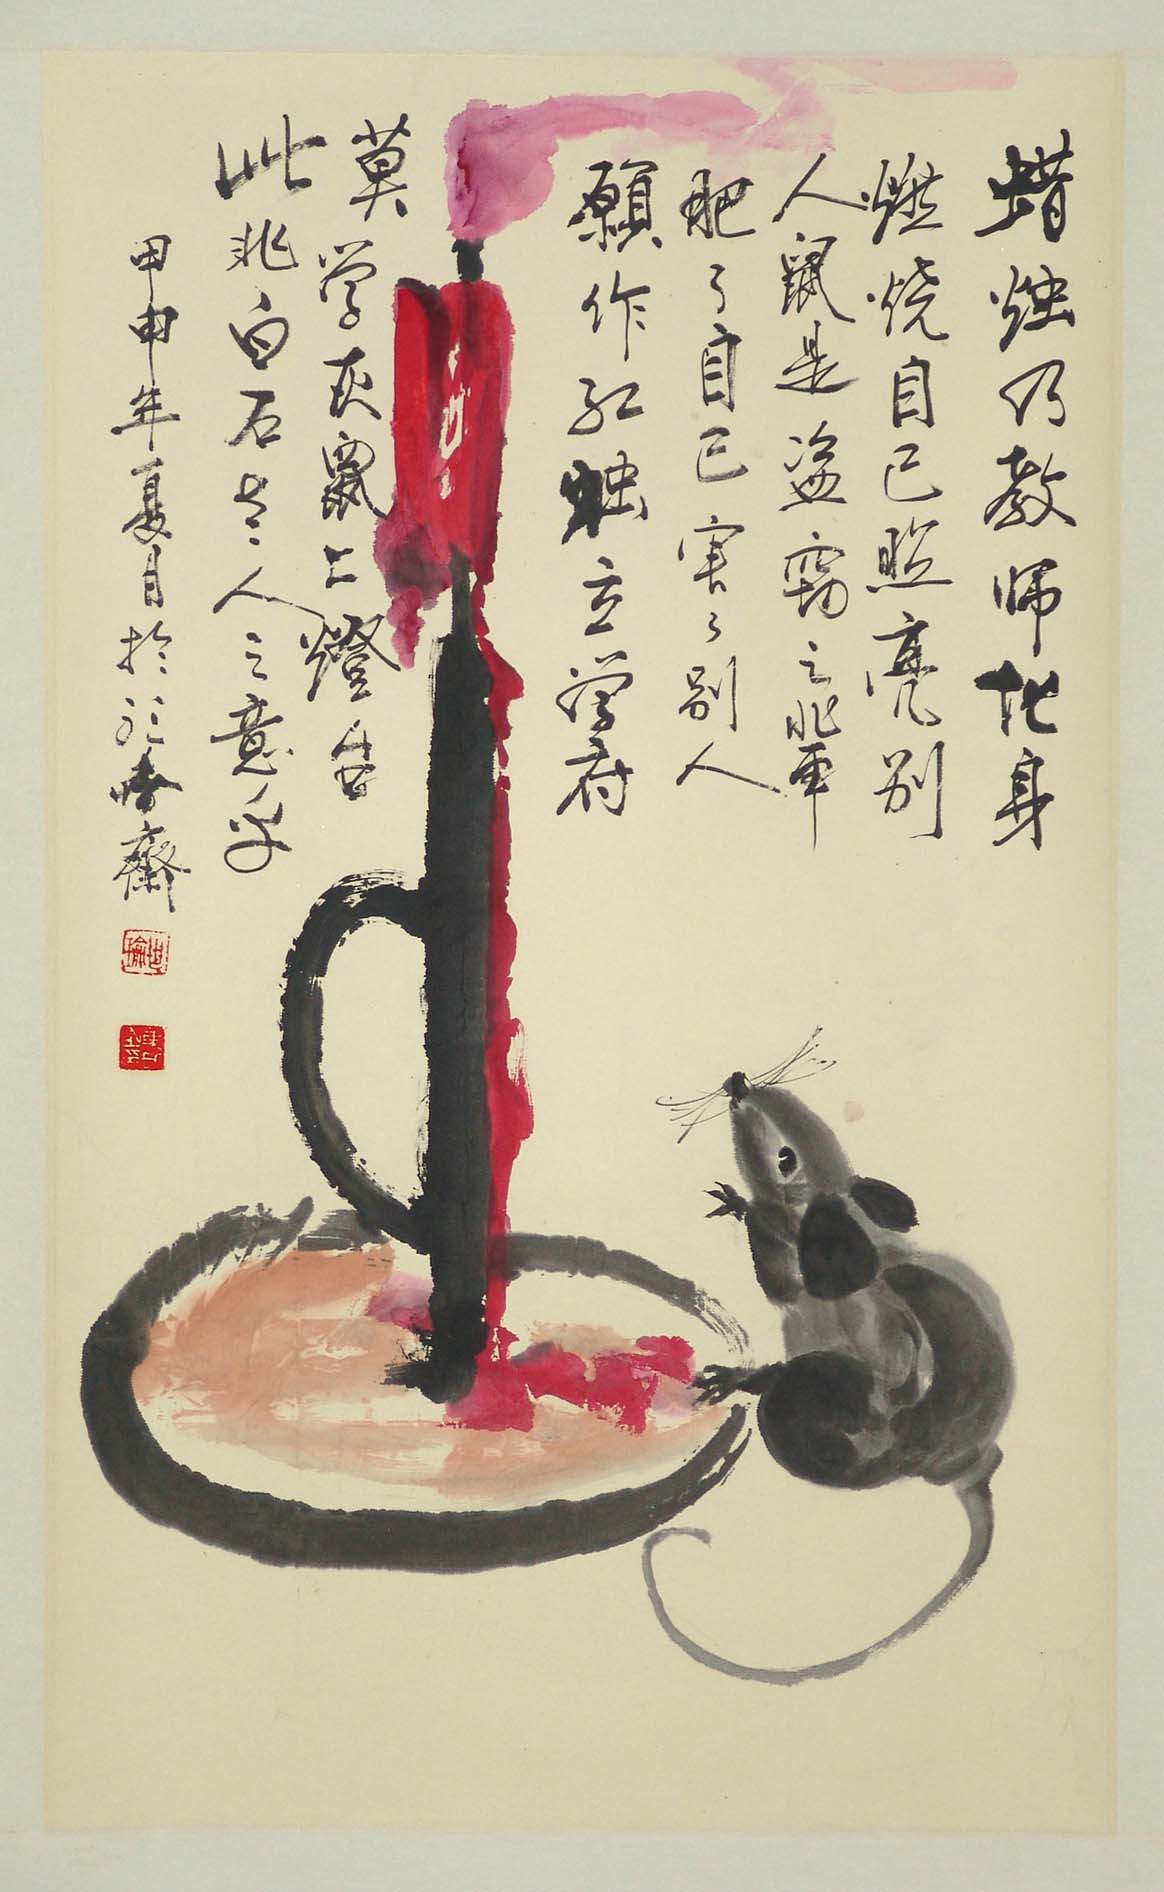 蜡烛乃教师化身
燃烧自己照亮别
人鼠是盗窃之輩
肥了自己害了别人
願作红烛立学府
莫学灰鼠上燈台
此非白石老人之意乎
甲申年夏月於 齋